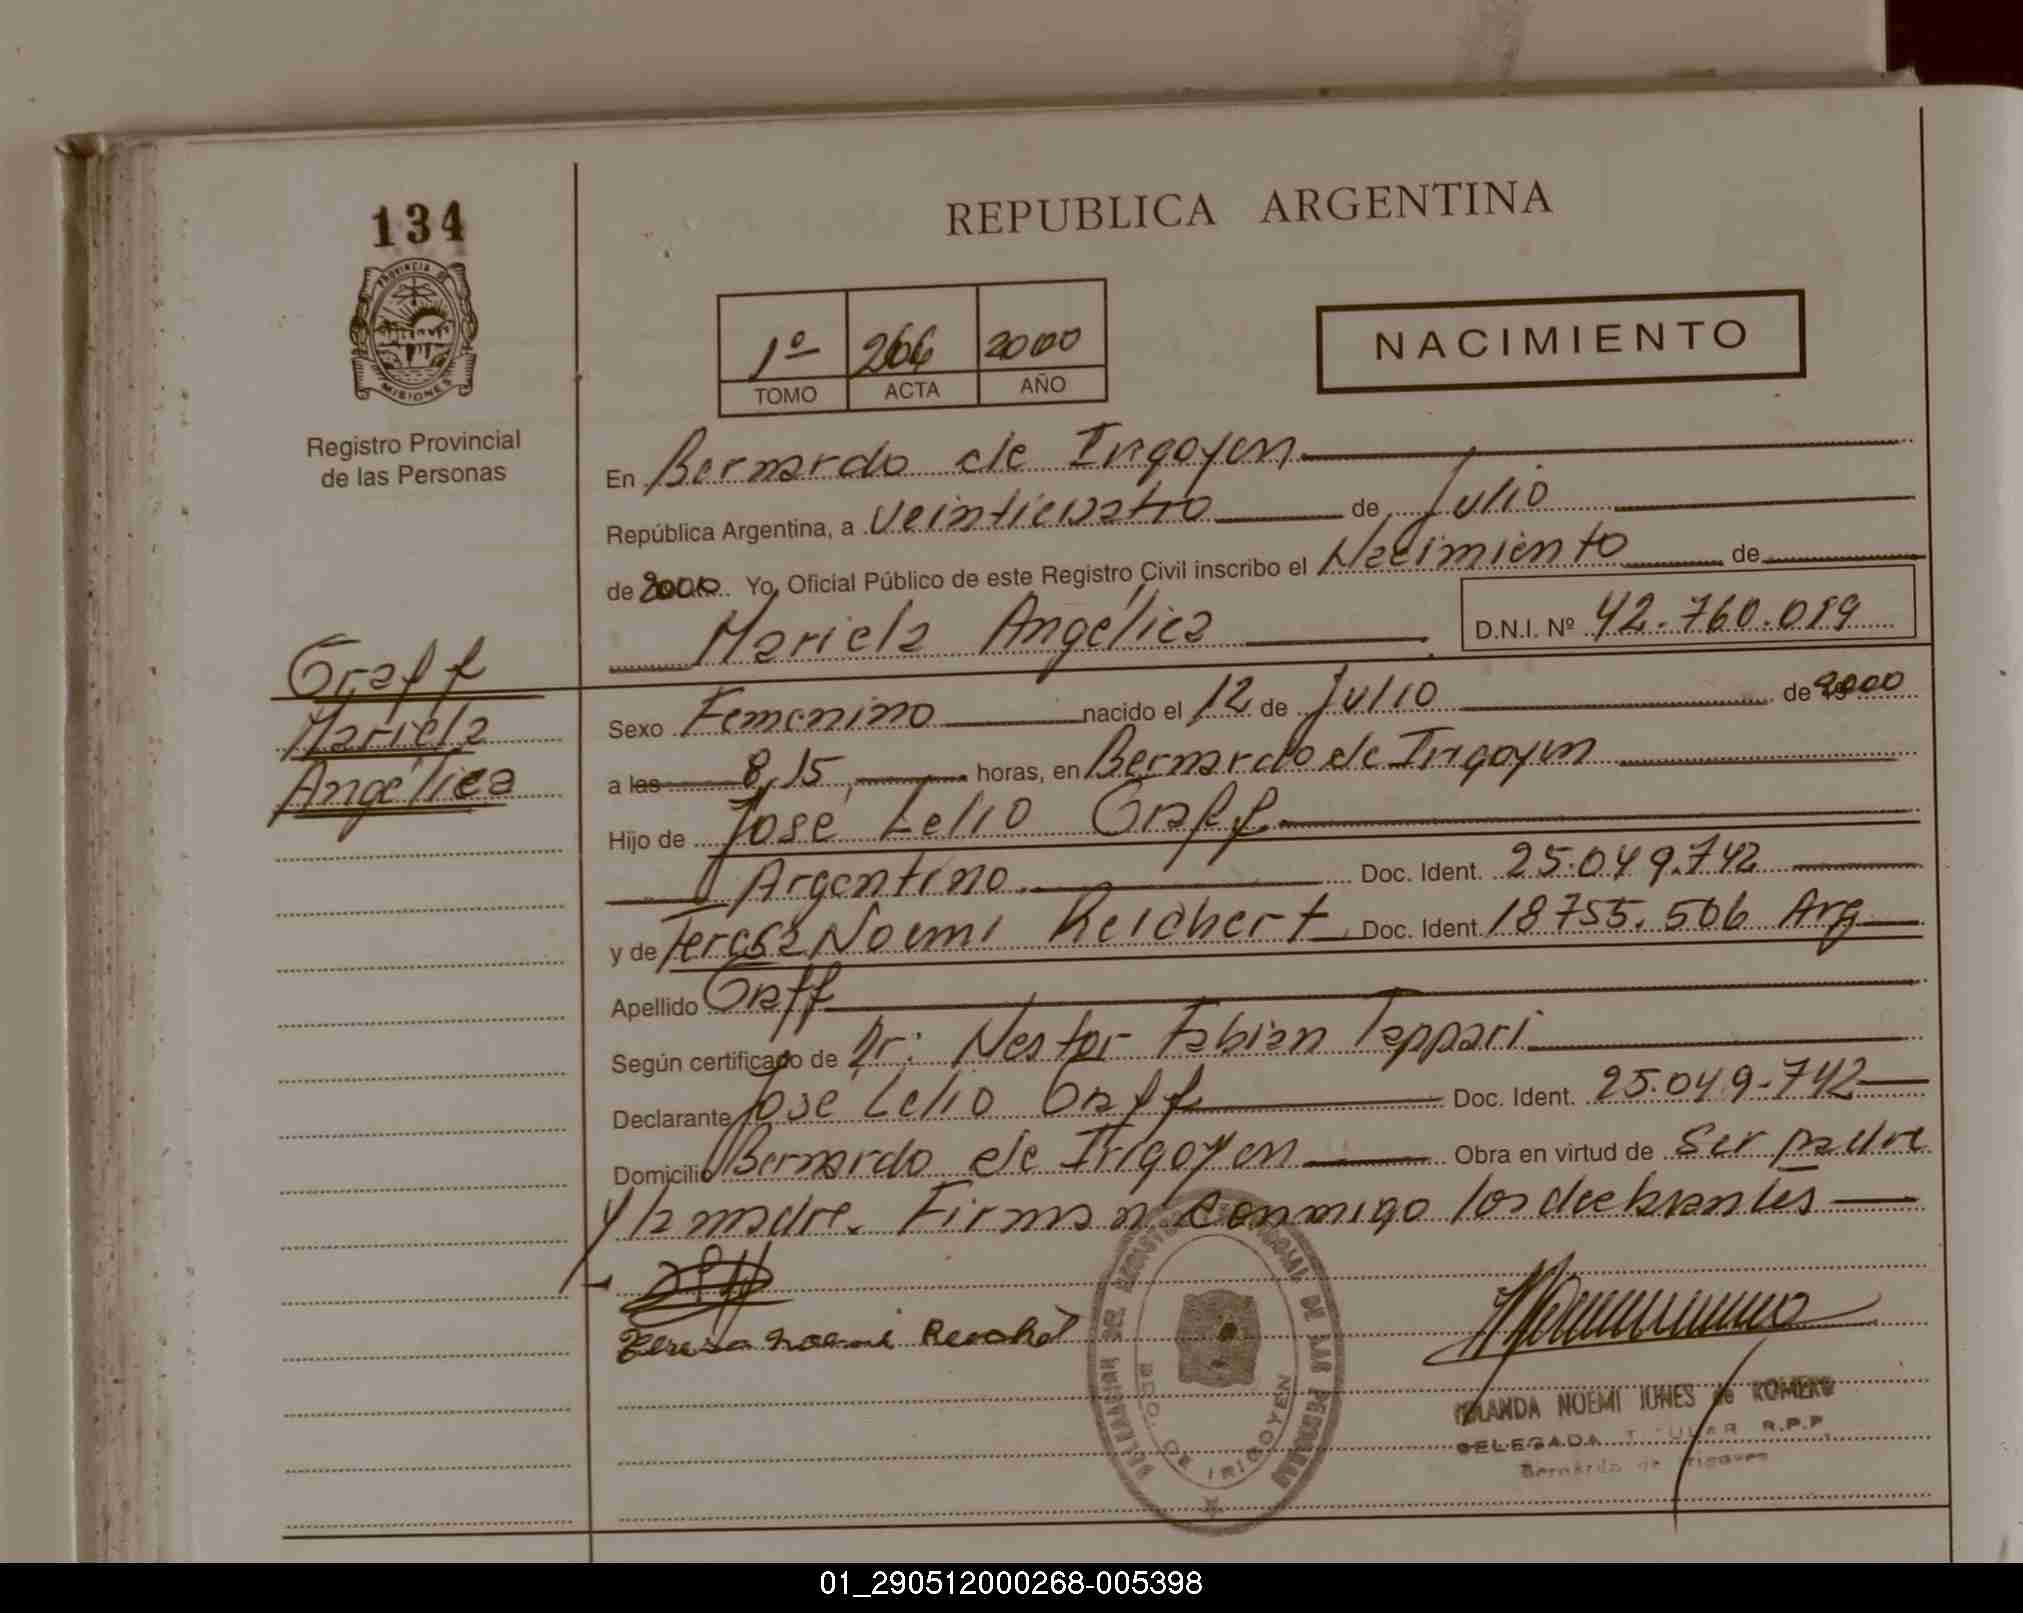 134
PROVINCIA DE
MISIONES
Registro Provincial
de las Personas
Graff
Mariela
Angélica
REPUBLICA ARGENTINA
1º 266 2000
TOMO ACTA AÑO
NACIMIENTO
En Bernardo de Irigoyen
República Argentina, a veinticuatro de Julio
de 2000 Yo, Oficial Público de este Registro Civil inscribo el Nacimiento de
Mariela Angélica D.N.I. Nº 42.760.019
Sexo Femenino nacido el 12 de Julio de 2000
a las 8,15 horas, en Bernardo de Irigoyen
Hijo de José Lelio Graff
Argentino Doc. Ident. 25.049.742
y de Teresa Noemi Reichert Doc. Ident. 18755.506 Arg
Apellido Graff
Según certificado de Dr: Nestor Fabian Tappari
Declarante José Lelio Graff Doc. Ident. 25.049-742
Domicilio Bernardo de Irigoyen Obra en virtud de Ser padre
y la madre. Firman conmigo los declarantes
Teresa Noemi
DELEGACION DEL REGISTRO PROVINCIAL DE LAS PERSONAS
BDO. DE IRIGOYEN
NOEMI JUNES de ROMERO
DELEGADA TITULAR R.P.P.
Bernardo de Irigoyen
01_290512000268-005398